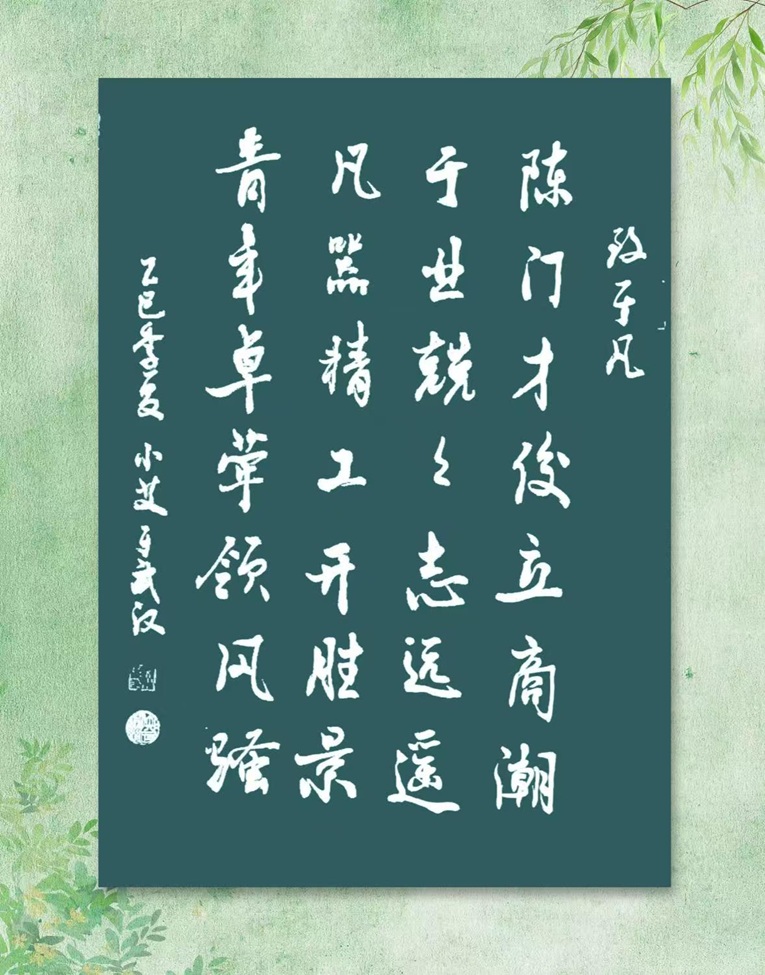 致于凡
陈门才俊立商潮
于业兢々志远遥
凡器精工开胜景
青年卓荦领风骚
乙巳季夏 小艾于武汉